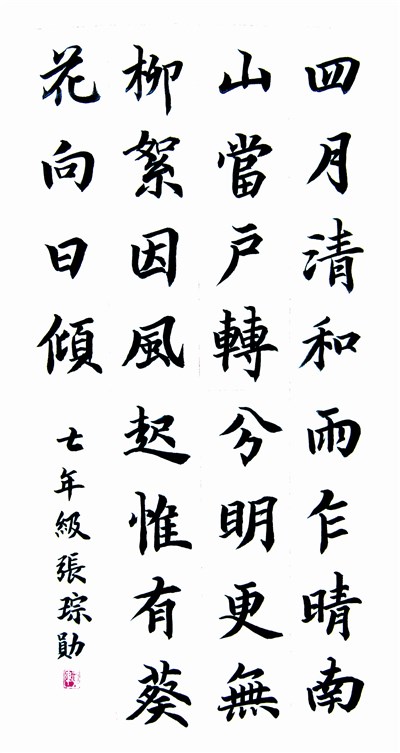 四月清和雨乍晴南
山當戶轉分明更無
柳絮因風起惟有葵
花向日傾
七年級張琮勛